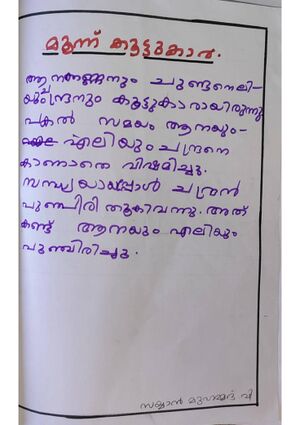 മൂന്ന് കൂട്ടുകാർ.
ആനണ്ണനും ചുണ്ടനെലി-
യും ചന്ദ്രനും കൂട്ടുകാരായിരുന്നു
പകൽ സമയം ആനയും-
എലിയും ചന്ദ്രനെ
കാണാതെ വിഷമിച്ചു.
സന്ധ്യയായപ്പോൾ ചന്ദ്രൻ
പുഞ്ചിരി തൂകിവന്നു. അത്
കണ്ട് ആനയും എലിയും
പുഞ്ചിരിച്ചു.
മുഹമ്മദ് വി